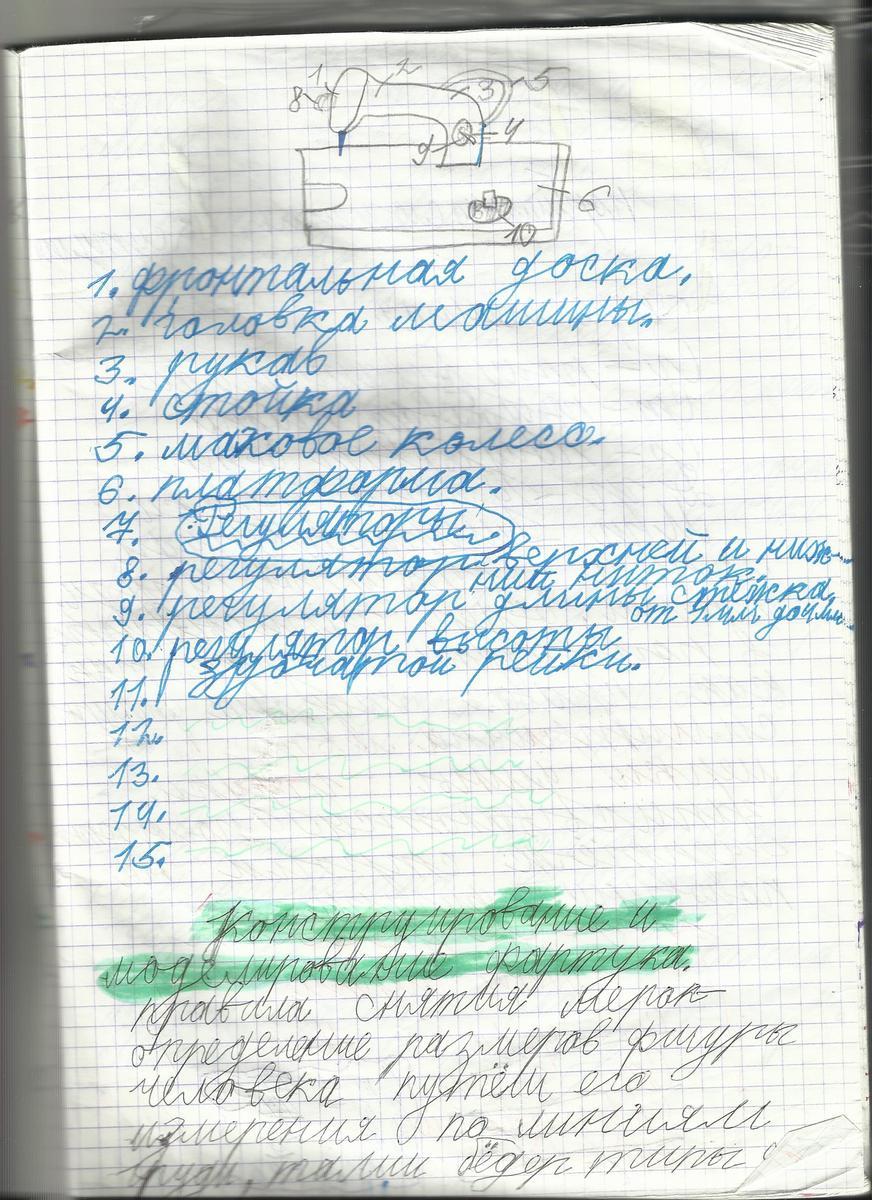 1 2 3 5
8
9 4
6
10
1. фронтальная доска.
2. головка машины.
3. рукав
4. стойка
5. маховое колесо.
6. платформа.
7. Регуляторы
8. регулятор верхней и ниж-
ний ниток.
9. регулятор длины стежка
от 1мм до 4мм
10. регулятор высоты
зубчатой рейки.
11.
12.
13.
14.
15.
Конструирование и
моделирование фартука.
правила снятия мерок-
определение размеров фигуры
человека путём его
измерения по линиям
груди, талии бёдер типы